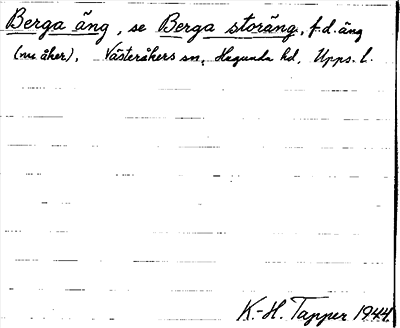 Berga äng, se Berga storäng, f.d. äng
(nu åker), Västeråkers sn, Hagunda hd, Upps. l.
K.-H. Tapper 1944